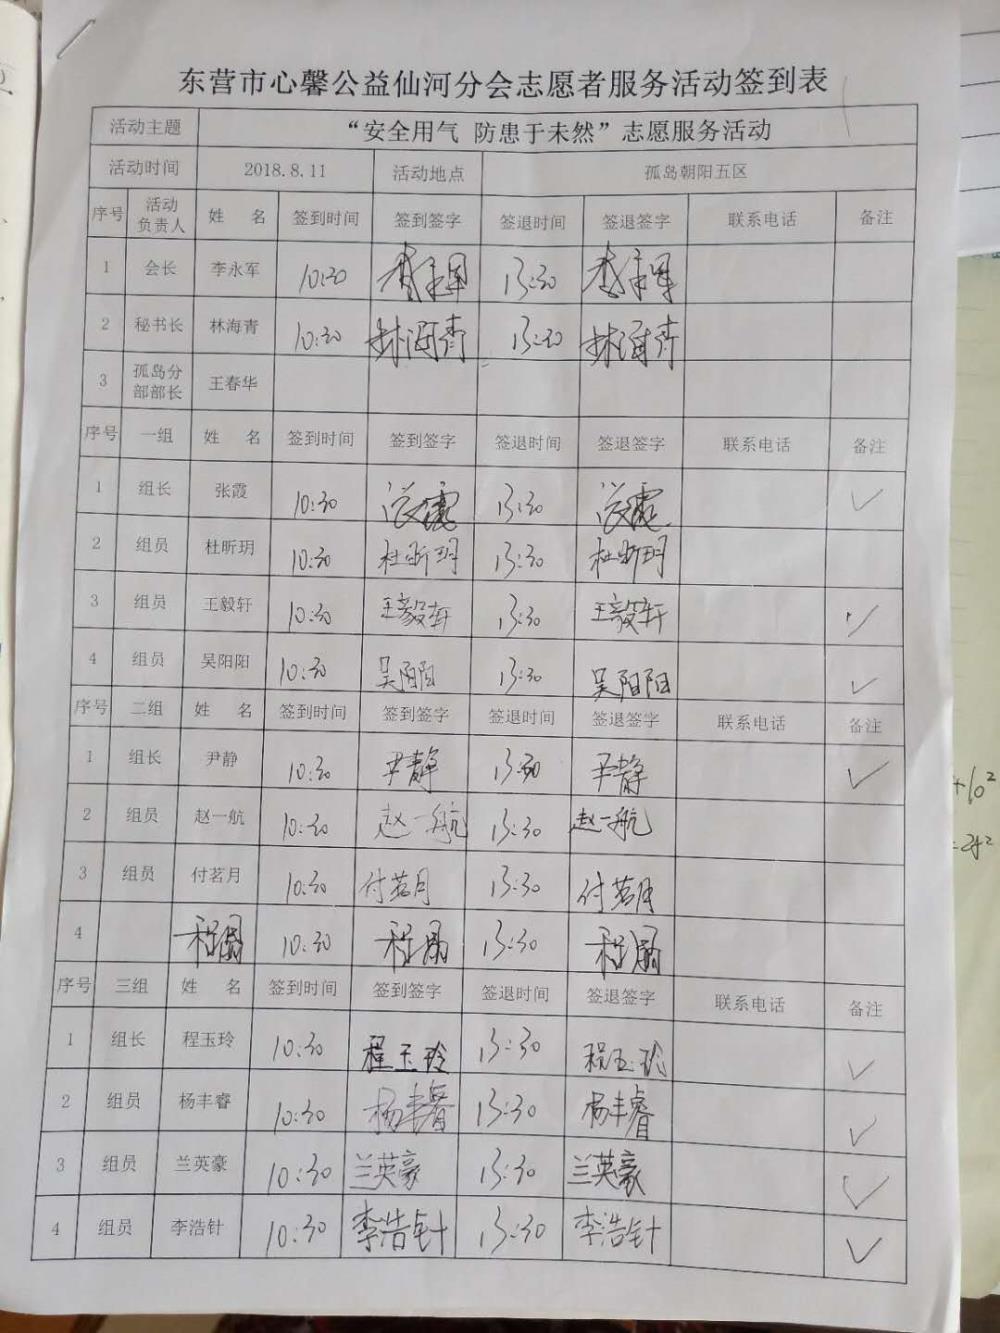 东营市心馨公益仙河分会志愿者服务活动签到表
活动主题 “安全用气 防患于未然”志愿服务活动
活动时间 2018.8.11 活动地点 孤岛朝阳五区
序号 活动负责人 姓 名 签到时间 签到签字 签退时间 签退签字 联系电话 备注
1 会长 李永军 10:30 李永军 13:30 李永军
2 秘书长 林海青 10:30 林海青 13:30 林海青
3 孤岛分部部长 王春华
序号 一组 姓 名 签到时间 签到签字 签退时间 签退签字 联系电话 备注
1 组长 张霞 10:30 张霞 13:30 张霞 ✓
2 组员 杜昕玥 10:30 杜昕玥 13:30 杜昕玥
3 组员 王毅轩 10:30 王毅轩 13:30 王毅轩 ✓
4 组员 吴阳阳 10:30 吴阳阳 13:30 吴阳阳 ✓
序号 二组 姓 名 签到时间 签到签字 签退时间 签退签字 联系电话 备注
1 组长 尹静 10:30 尹静 13:30 尹静 ✓
2 组员 赵一航 10:30 赵一航 13:30 赵一航
3 组员 付茗月 10:30 付茗月 13:30 付茗月
4 10:30 13:30
序号 三组 姓 名 签到时间 签到签字 签退时间 签退签字 联系电话 备注
1 组长 程玉玲 10:30 程玉玲 13:30 程玉玲 ✓
2 组员 杨丰睿 10:30 杨丰睿 13:30 杨丰睿 ✓
3 组员 兰英豪 10:30 兰英豪 13:30 兰英豪 ✓
4 组员 李浩针 10:30 李浩针 13:30 李浩针 ✓